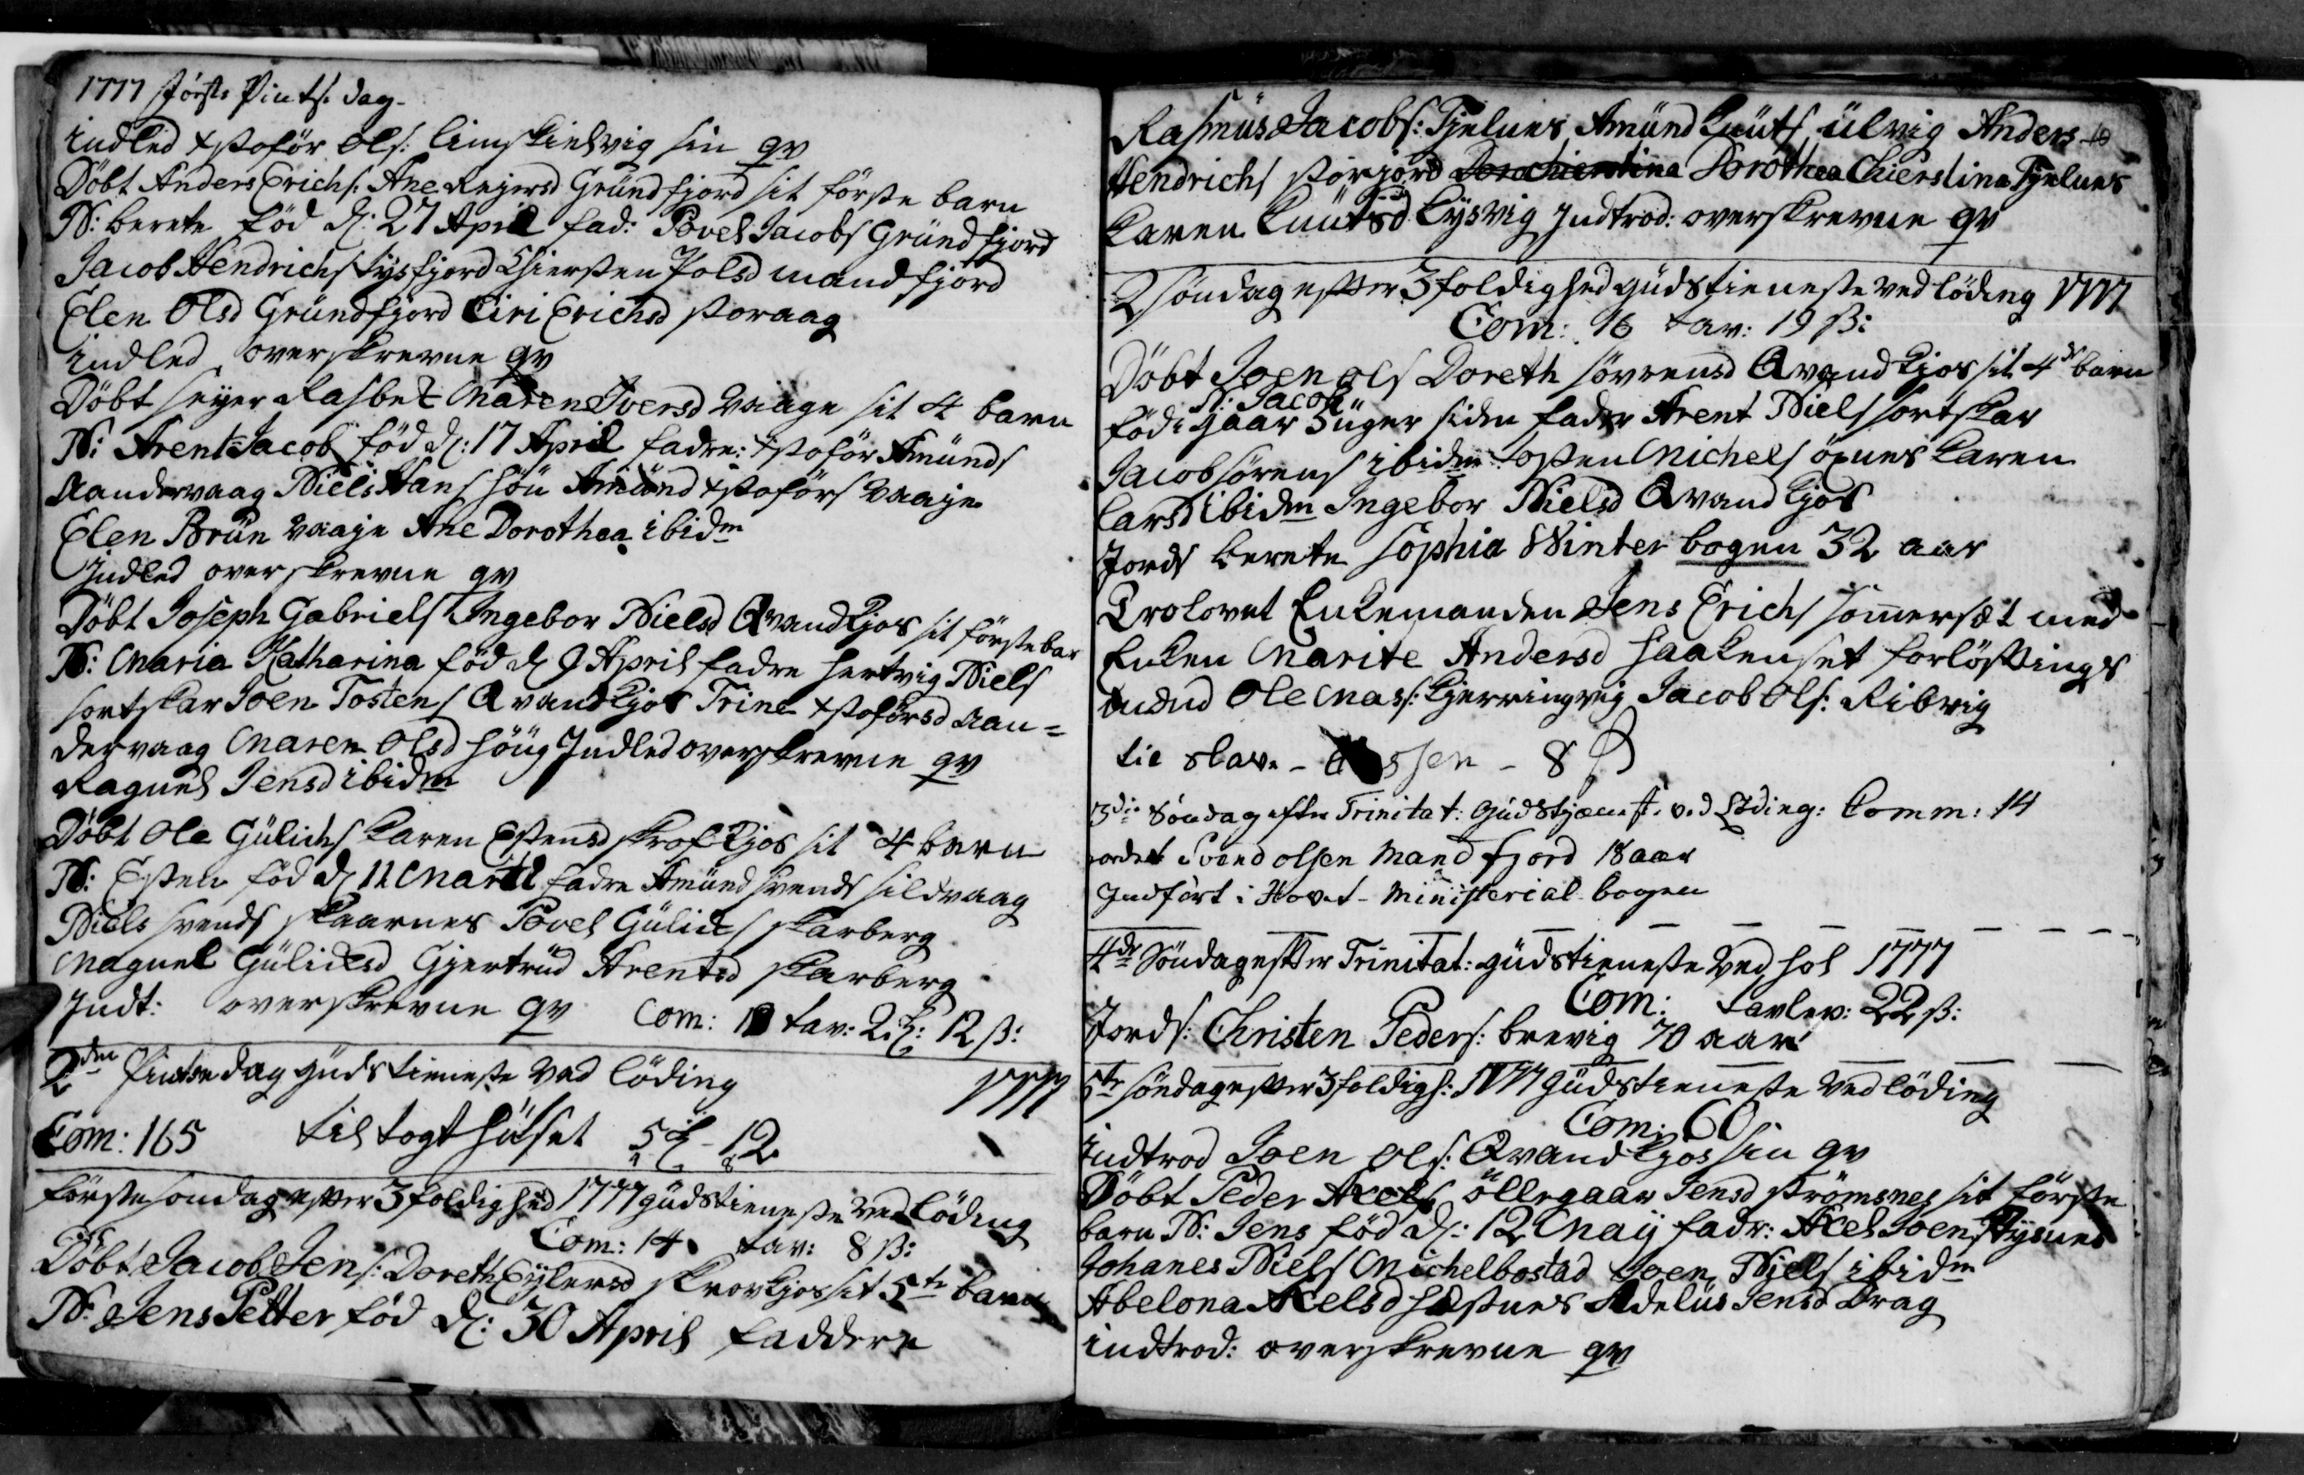 1777 første Pints: dag
indled xstoför Ols: sin qv
Döbt Anders Erichs: Ane Rejersd Gründfjord sit første barn
N: berete föd d: 27 April fad: Povel Jacobs Gründfjord
Jacob Hendrichs Tysfjord Chiersten Polsd mandfjord
Elen Olsd Gründfjord Ciri Erichsd storaag
indled overskrevne qv
Döbt sejer Rasbek Maren Iversd vaage sit 4 barn
N: Arent Jacob föd d: 17 April fadre: xstoför Amünds
Aandervaag Niels Hans höü Amünd xstoförs vaaje
Elen Brün vaaje Ane Dorothea ibidm
Indled overskrevne qv
Döbt Joseph Gabriels Ingebor Nielsd Qvandkjos sit første bar
N: Maria Katharina föd d 9 April fadre hertvig Niels
sortskar Joen Tostens Qvandkjos Trine xstoförsd Aan=
dervaag Maren Olsd höüg Indled overskrevne qv
Ragnel Jensd ibidm
Döbt Ole Gülichs Karen Estensd skrofkjos sit 4 barn
N: Esten föd d 11 Martz fadre Amünd svends sildvaag
Niels svends skaarnes Povel Gülichs skarberg
Magnel Gülichsd Gjertrüd Arentsd skarberg
Indt: overskrevne qv Com: 18 tav: 2 : 12 ß:
2den Pintsedag güdstieneste ved löding 1777
Com: 165 til togthüset 5 - 12
første søndag efter 3foldighed 1777 güdstieneste ved löding
Com: 14 tav: 8 ß:
Döbt Jacob Jens: Doreth Eylersd skrovkjos sit 5te barn
N: Jens Petter föd d: 30 April faddere
Rasmüs Jacobs: Tjelnes Amünd Knüts ülvig Anders
Hendrichs storjord Dorothea Chierstina Tjelnes
Karen Knütsd Lysvig Indtrod: overskrevne qv
2 søndag efter 3foldighed güdstieneste ved löding 1777
Com: 16 tav: 19 ß:
Döbt Joen Ols Doreth sörensd Qvandkjos sit 4de barn
N: Jacob
föd i gaar 3 üger siden fadre Arent Niels sortskar
Jacob sörens ibidm Tosten Michels öxnes Karen
Larsd ibidm Ingebor Nielsd Qvandkjos
Jords berete sophia Winter bogen 32 aar
Trolovet Enkemanden Jens Erichs sömerset med
Enken Marite Andersd haakenset forlöftings
mænd Ole Mas: kjerringvig Jacob Ols: Ribvig
tie slav. - - 8 ß
3die Søndag efter Trinitat: Gudstjenest. ved Löding: Comm: 14
jordet Svend olsen Mandfjord 18 aar
Indfört i Hovet-Ministerial-bogen
4de Söndag efter Trinitat: güdstieneste ved hol 1777
Com: tavlev: 22 ß:
Jords: Christen Peders: brevig 70 aar
5te søndag efter 3foldigh: 1777 Güdstieneste ved löding
Com: 60
indtrod Joen Ols: Qvandkjos sin qv
Döbt Peder Axels öllegaar Jensd strömsnes sit første
barn N: Jens föd d: 12 Maÿ fadr: Axel Joens Tysnes
Johanes Niels Michelbostad Joen Niels ibidm
Abelona Axelsd hæstnes Adelüs Jensd Drag
indtrod: overskrevne qv